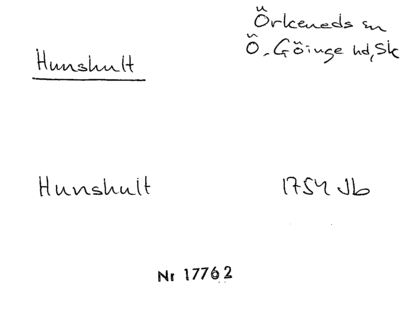 Örkeneds sn
Hunshult
Ö. Göinge hd, Sk
Hunshult 1754 Jb
Nr 17762